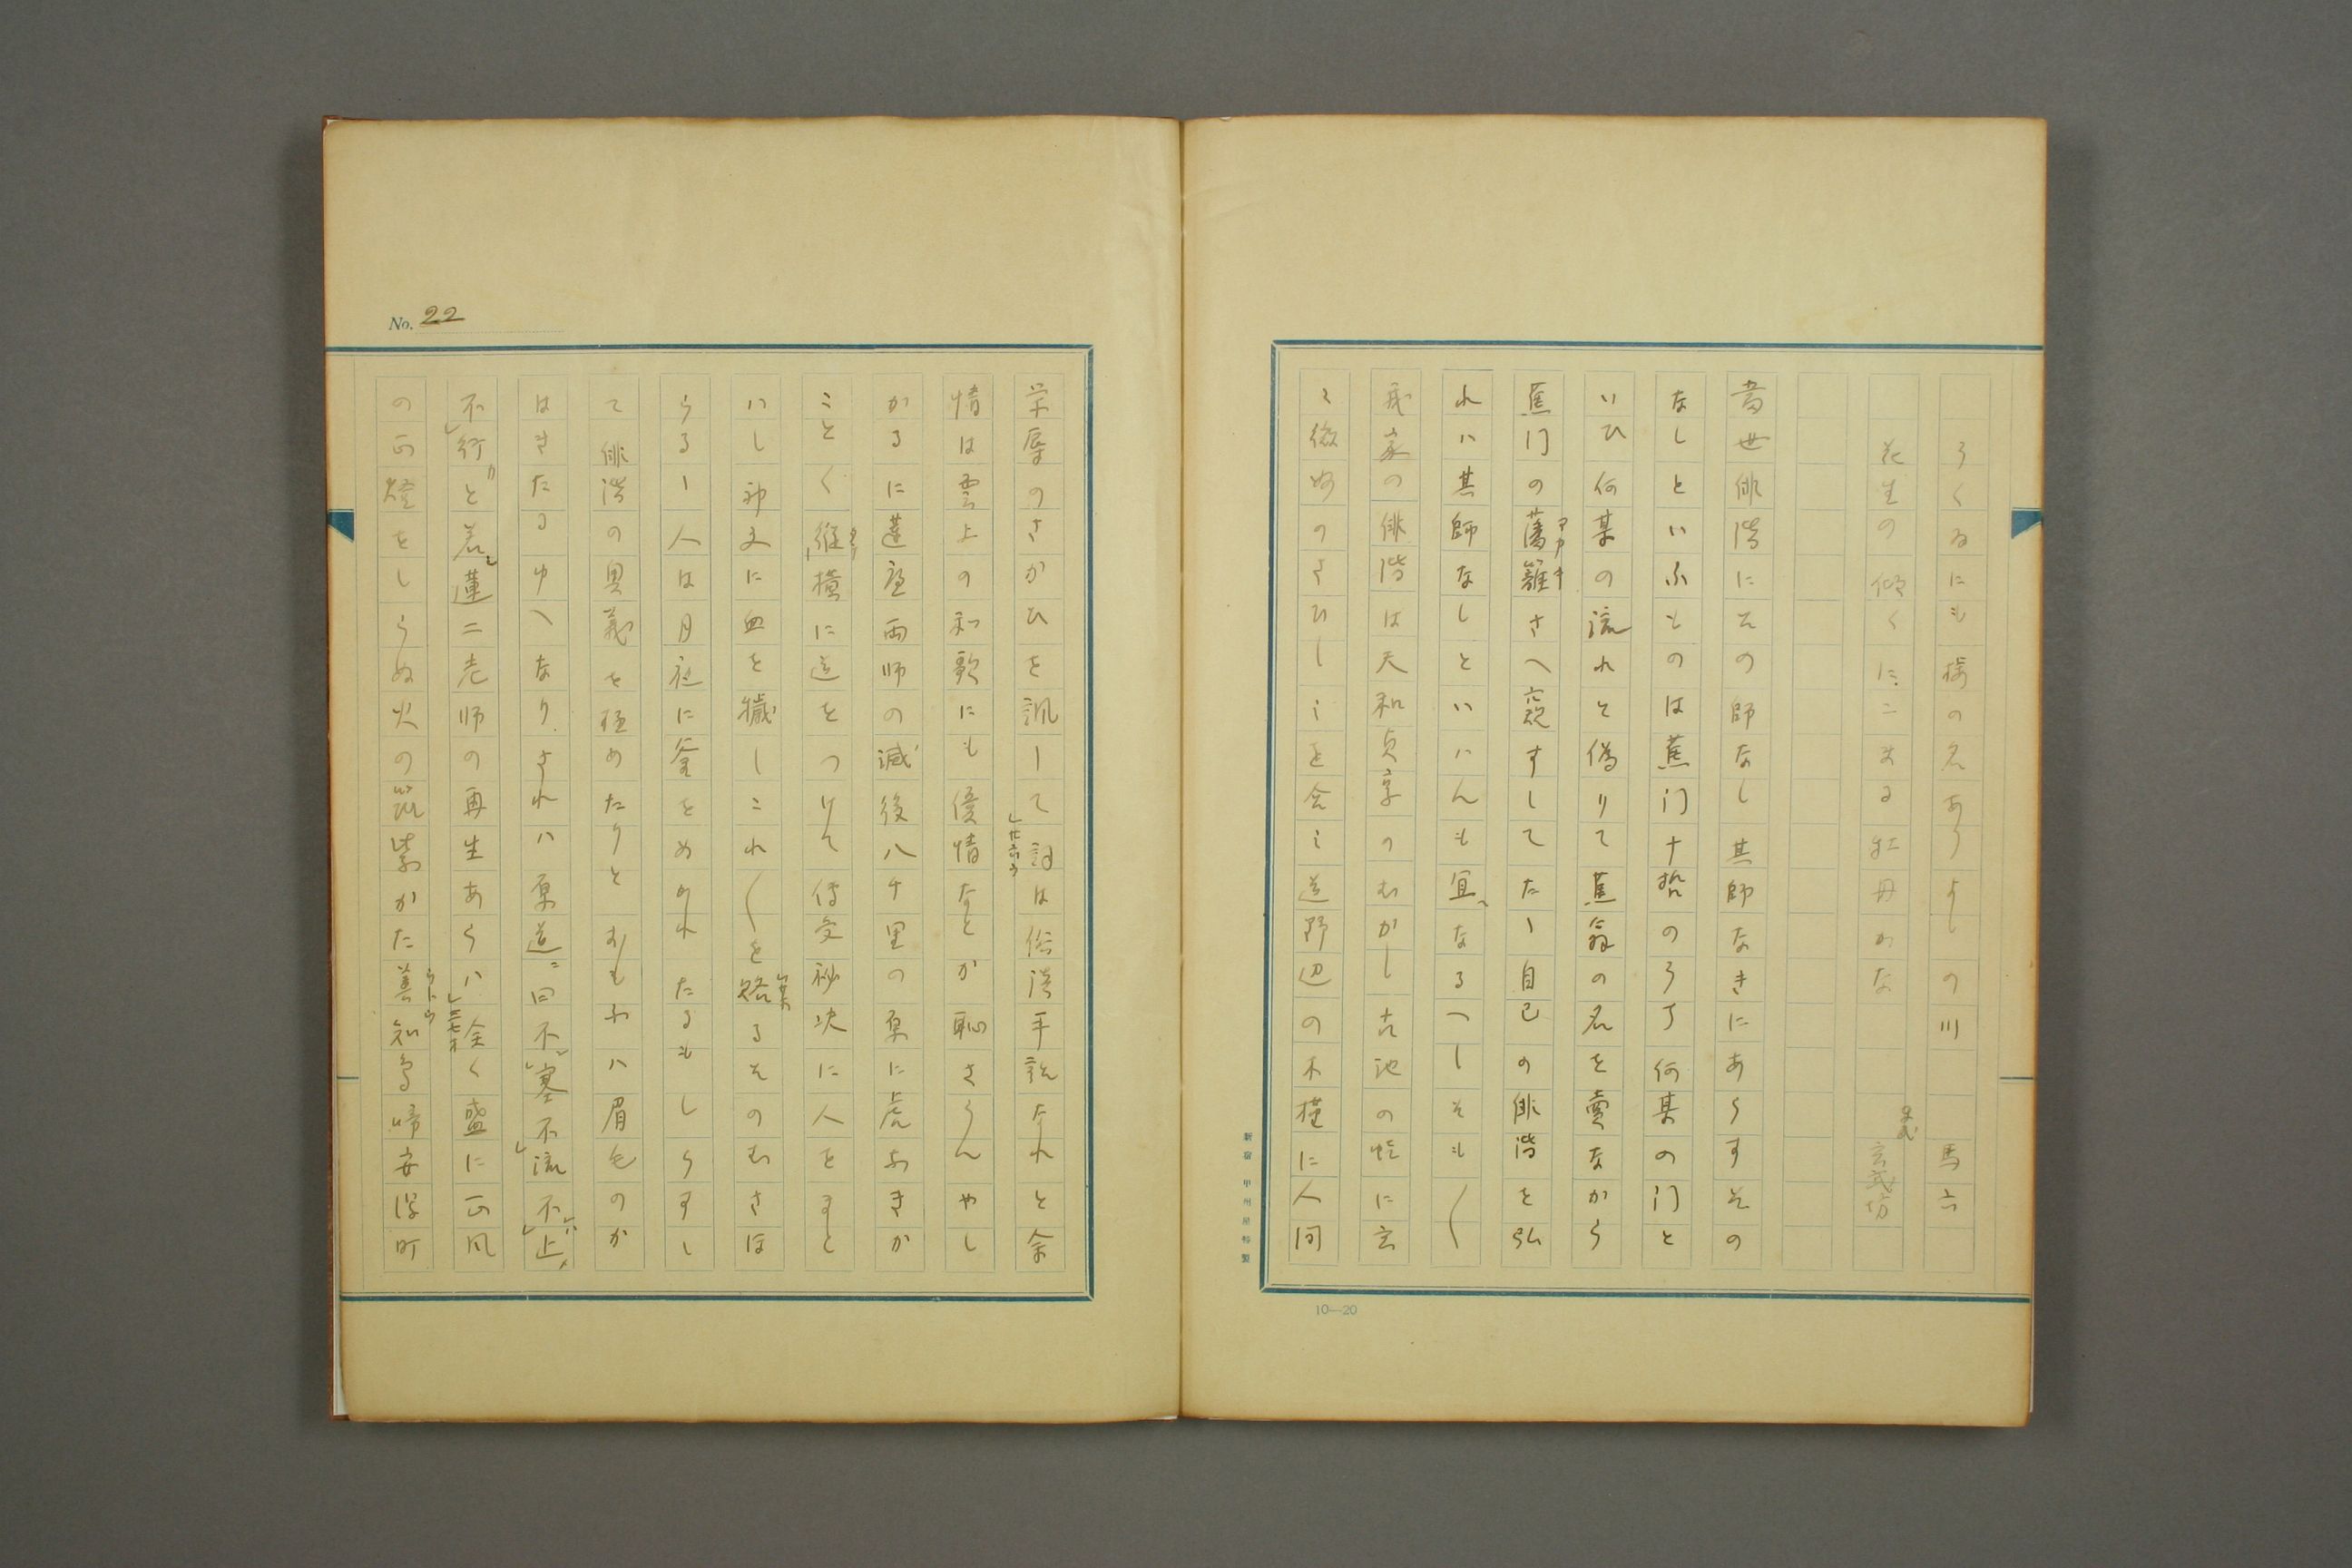 うくゐにも梅の名ありよしの川　馬六
花生の傾くにこまる牡丹かな　玄武坊
當世俳諧にその師なし其師なきにあらすその
なしといふものは蕉门十哲のうち何某の门と
いひ何某の流れと偽りて蕉翁の名を賣なから
蕉门の藩籬さへ窺すしてたゝ自己の俳諧を弘
れハ其師なしといハんも宜なるへしそも〱
我家の俳諧は天和貞享のむかし古池の蛙に玄
々微妙のさひしミを会ミ道野辺の木槿に人间
栄辱のさかひを諷して詞は俗談平話なれと余
情は雲上の和歌にも優情なとか恥さらんやし
かるに蓮庵両师の滅後八千里の原に虎おきか
ことく縦横に道をつけて傳受秘决に人をまと
ハし神文に血を穢しこれ〱を賂るそのむさほ
らるゝ人は月社に釜をめけれたるもしらすし
て俳諧の奥義を極めたりとおもふハ眉毛のか
はきたるゆへなりされハ原道ニ曰不塞不流不止
不行と若蓮二老师の再生あらハ全く盛に正风
の正燈をしらぬ火の筑紫かた善知鳥啼安浮町
No. 22
10—20
新宿 甲州屋特製